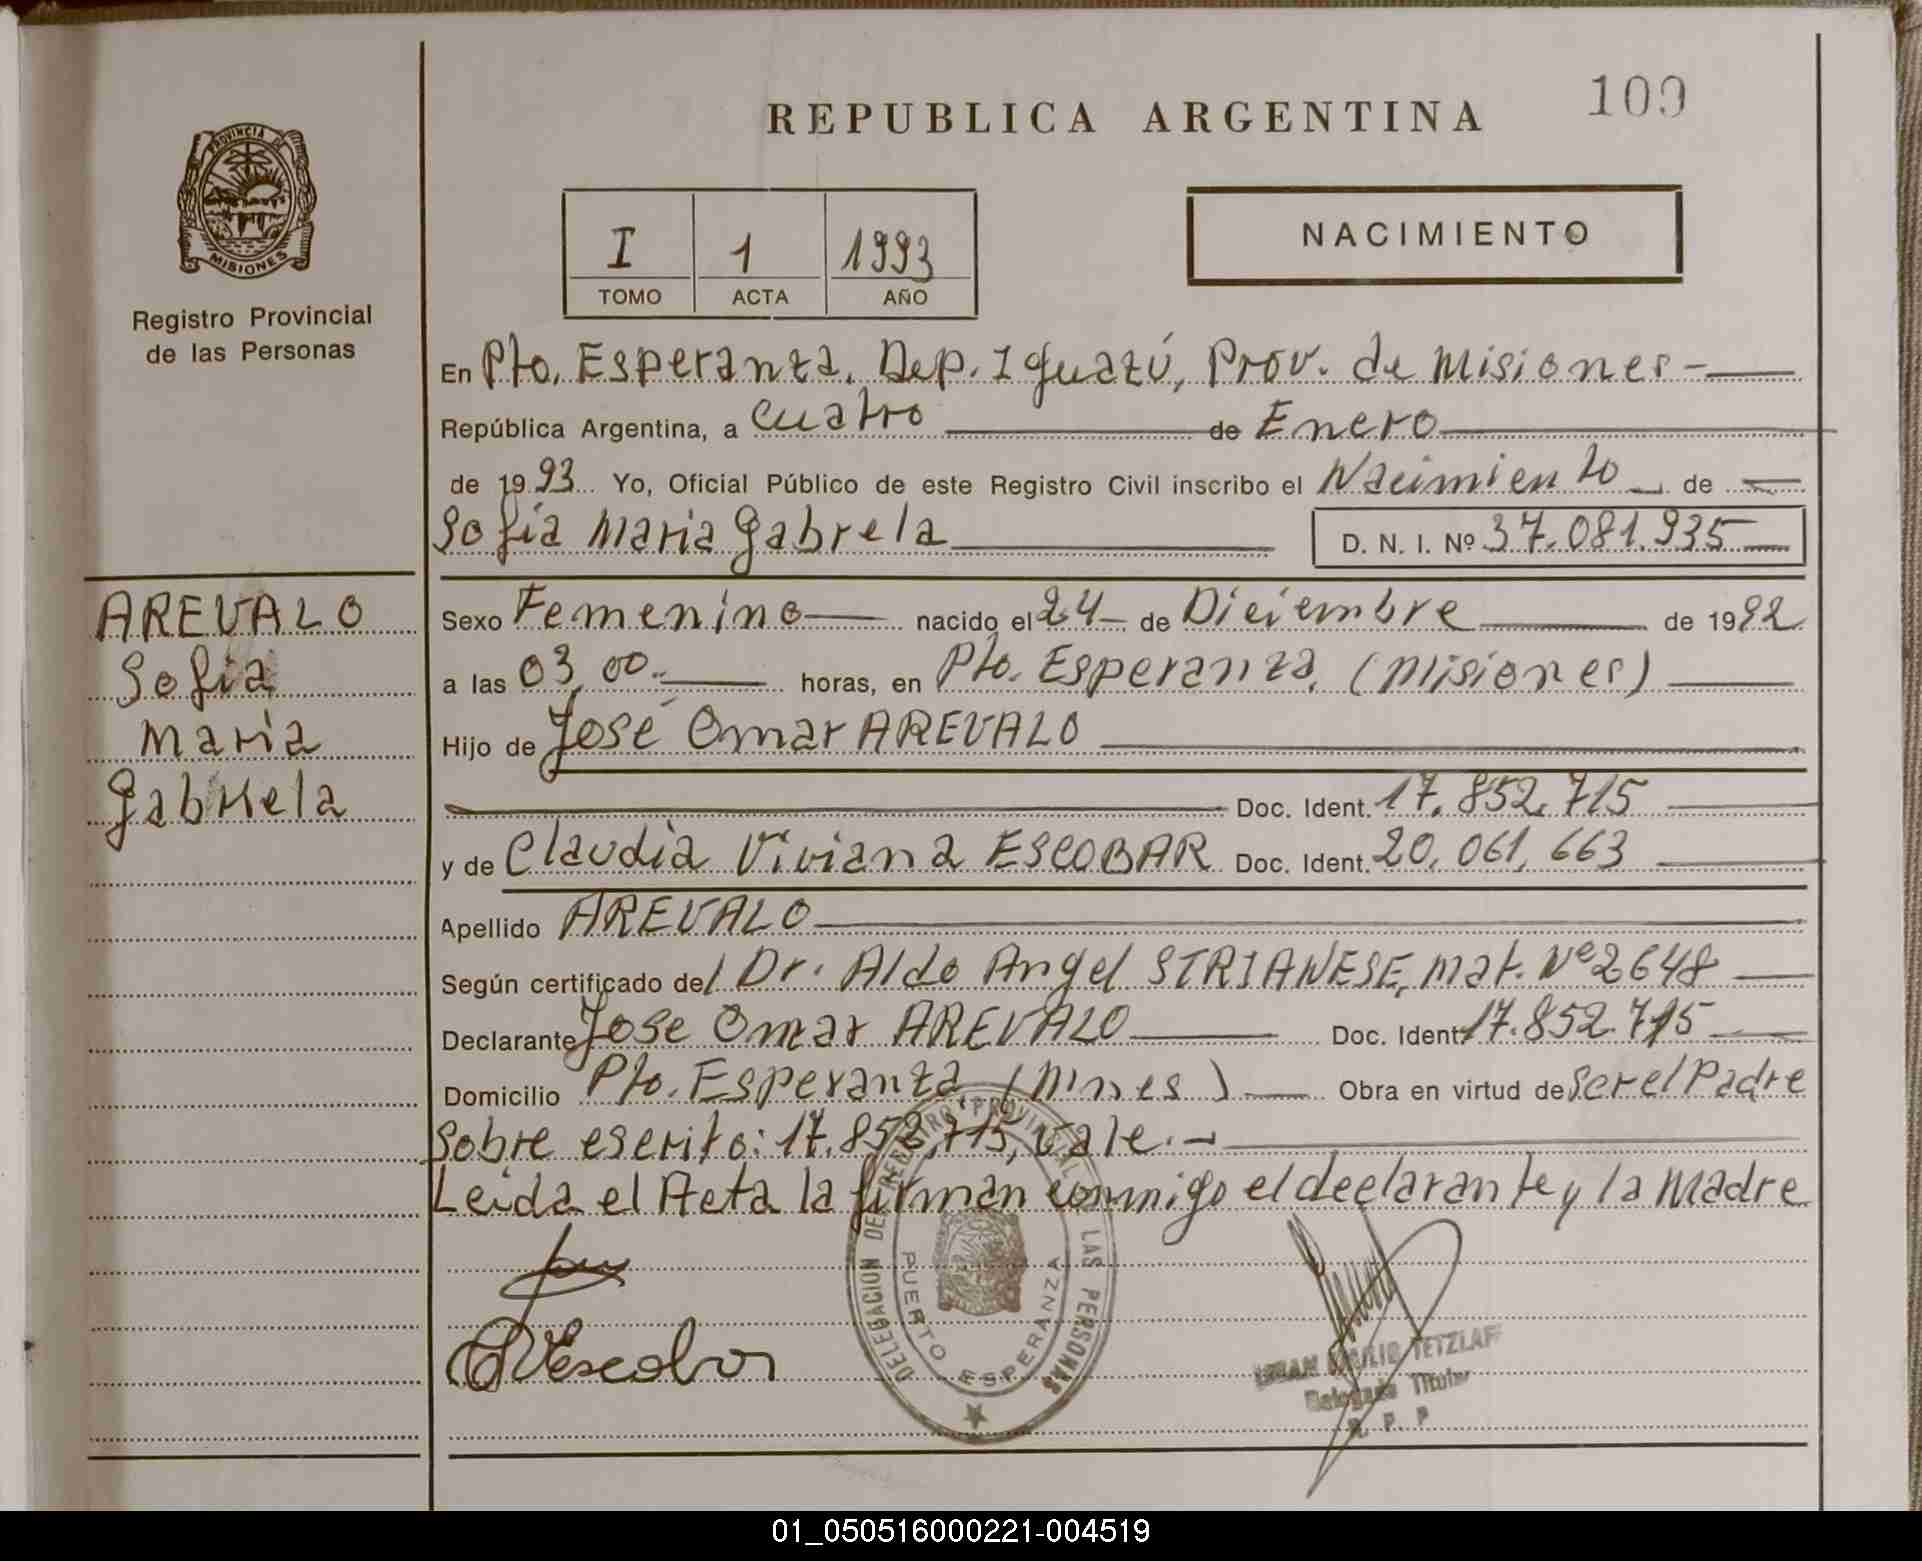 REPUBLICA ARGENTINA
109
PROVINCIA DE
MISIONES
Registro Provincial
de las Personas
I 1 1993
TOMO ACTA AÑO
NACIMIENTO
En Pto. Esperanza. Dep. Iguazú, Prov. de Misiones -
República Argentina, a cuatro de Enero
de 1993 Yo, Oficial Público de este Registro Civil inscribo el Nacimiento de
Sofia Maria Gabrela D. N. I. Nº 37.081.935
AREVALO
Sofia
Maria
Gabriela
Sexo Femenino nacido el 24 - de Diciembre de 1992
a las 03,00. horas, en Pto. Esperanza, (Misiones)
Hijo de José Omar AREVALO
Doc. Ident. 17.852.715
y de Claudia Viviana ESCOBAR Doc. Ident. 20.061.663
Apellido AREVALO
Según certificado del Dr. Aldo Angel STRIANESE, Mat. Nº 2648
Declarante Jose Omar AREVALO Doc. Ident. 17.852.715
Domicilio Pto. Esperanza (Mnes) Obra en virtud de Ser el Padre
Sobre escrito: 17.852,715, vale. -
Leida el Acta la firman conmigo el declarante y la Madre
Escobar
DELEGACION DEL REGISTRO PROVINCIAL DE LAS PERSONAS
PUERTO ESPERANZA
TETZLAF
Delegado Titular
R. P. P
01_050516000221-004519